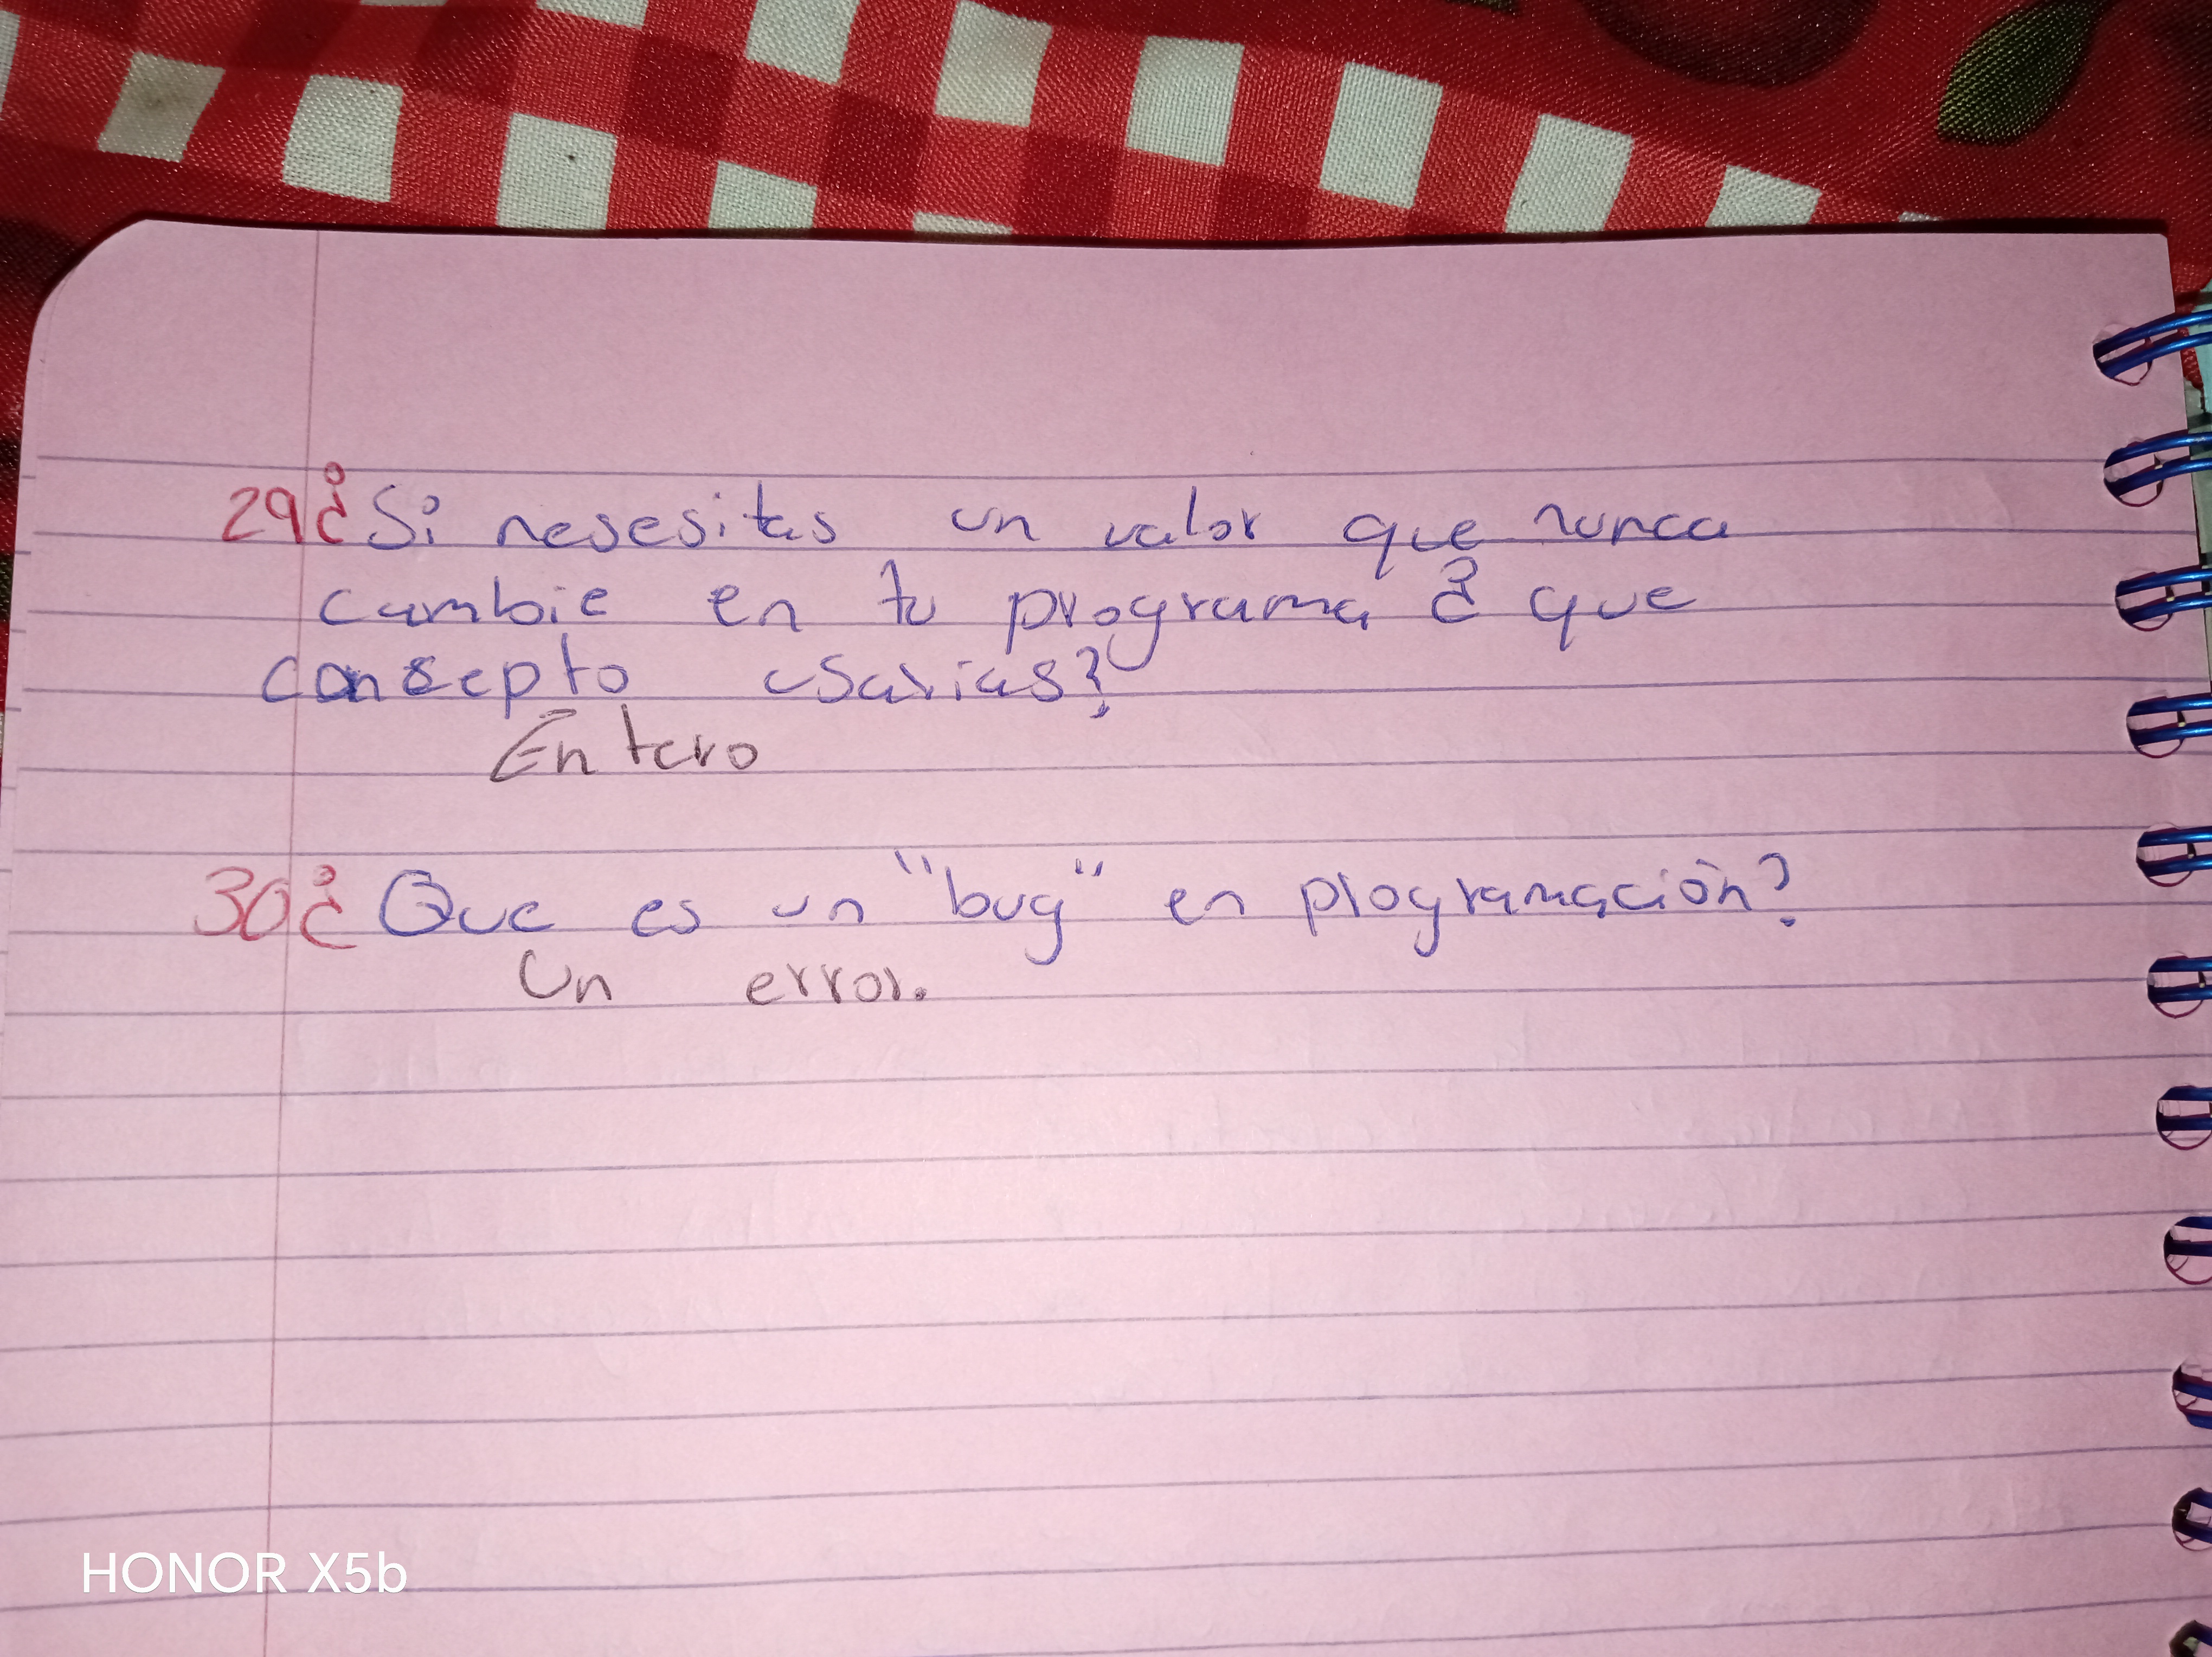 29¿ Si nesesitas un valor que nunca
cambie en tu programa ¿ que
consepto usarias?
Entero
30¿ Que es un "bug" en programación?
Un error.
HONOR X5b